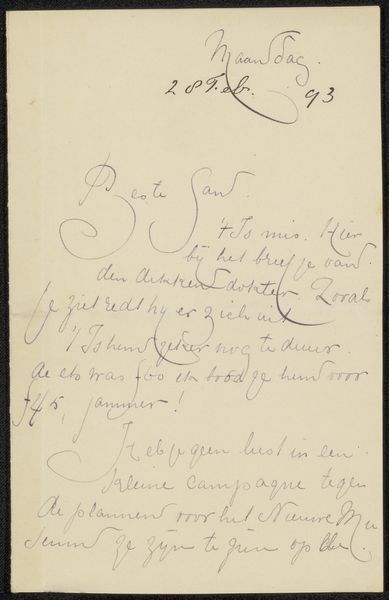 Maandag.
28 Feb. 93
Beste Sand.
't Is mis. Hier
bij het briefje van
den dikken dokter. Zoals
je ziet redt hij er zich uit
't Is hem zeker nog te duur.
de ets was f60 ik bood ze hem voor
f45, jammer!
Heb je geen lust in een
kleine campagne tegen
de plannen voor het Nieuwe Mu
seum ze zijn te zien op